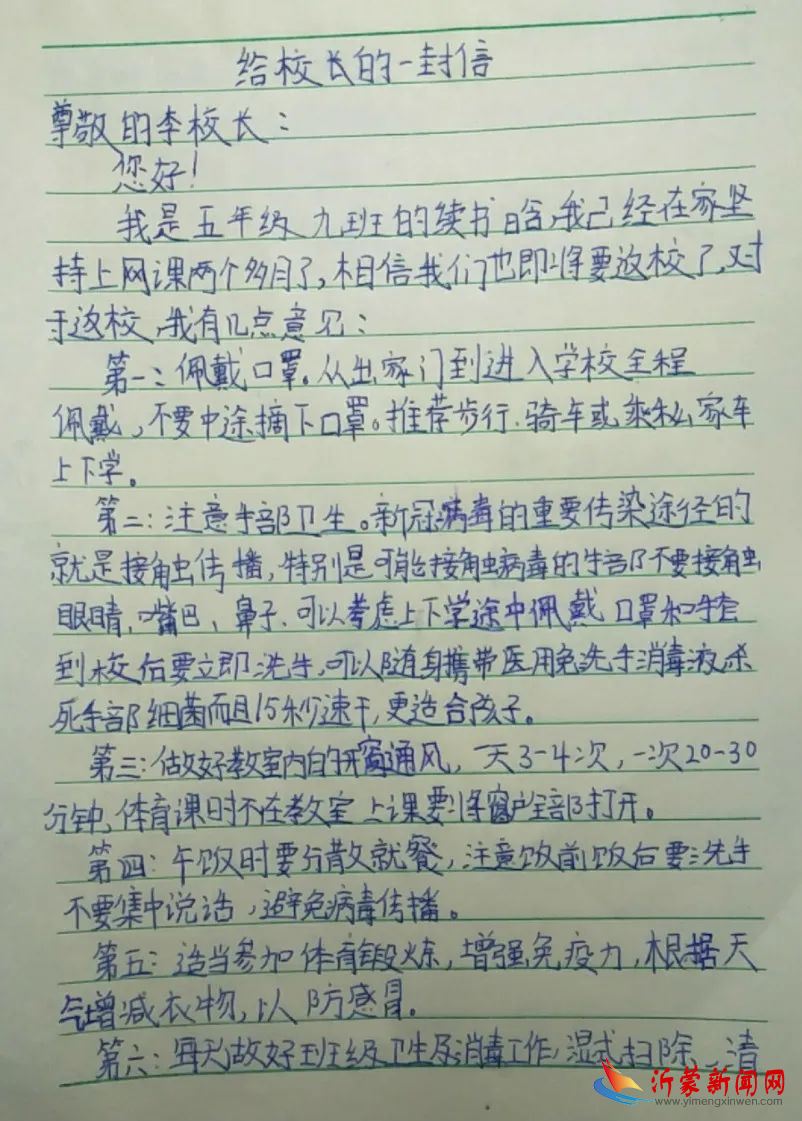 给校长的一封信
尊敬的李校长：
您好！
我是五年级九班的续书晗，我已经在家坚
持上网课两个多月了，相信我们也即将要返校了，对
于返校，我有几点意见：
第一：佩戴口罩。从出家门到进入学校全程
佩戴，不要中途摘下口罩。推荐步行、骑车或乘私家车
上下学。
第二：注意手部卫生。新冠病毒的重要传染途径的
就是接触传播，特别是可能接触病毒的手部不要接触
眼睛、嘴巴、鼻子、可以考虑上下学途中佩戴口罩和手套
到校后要立即洗手，可以随身携带医用免洗手消毒液杀
死手部细菌而且15秒速干，更适合孩子。
第三：做好教室内的开窗通风，一天3-4次，一次20-30
分钟、体育课时不在教室上课要将窗户全部打开。
第四：午饭时要分散就餐，注意饭前饭后要洗手
不要集中说话，避免病毒传播。
第五：适当参加体育锻炼，增强免疫力，根据天
气增减衣物，以防感冒。
第六：每天做好班级卫生及消毒工作，湿式扫除、清
沂蒙新闻网
www.yimengxinwen.com